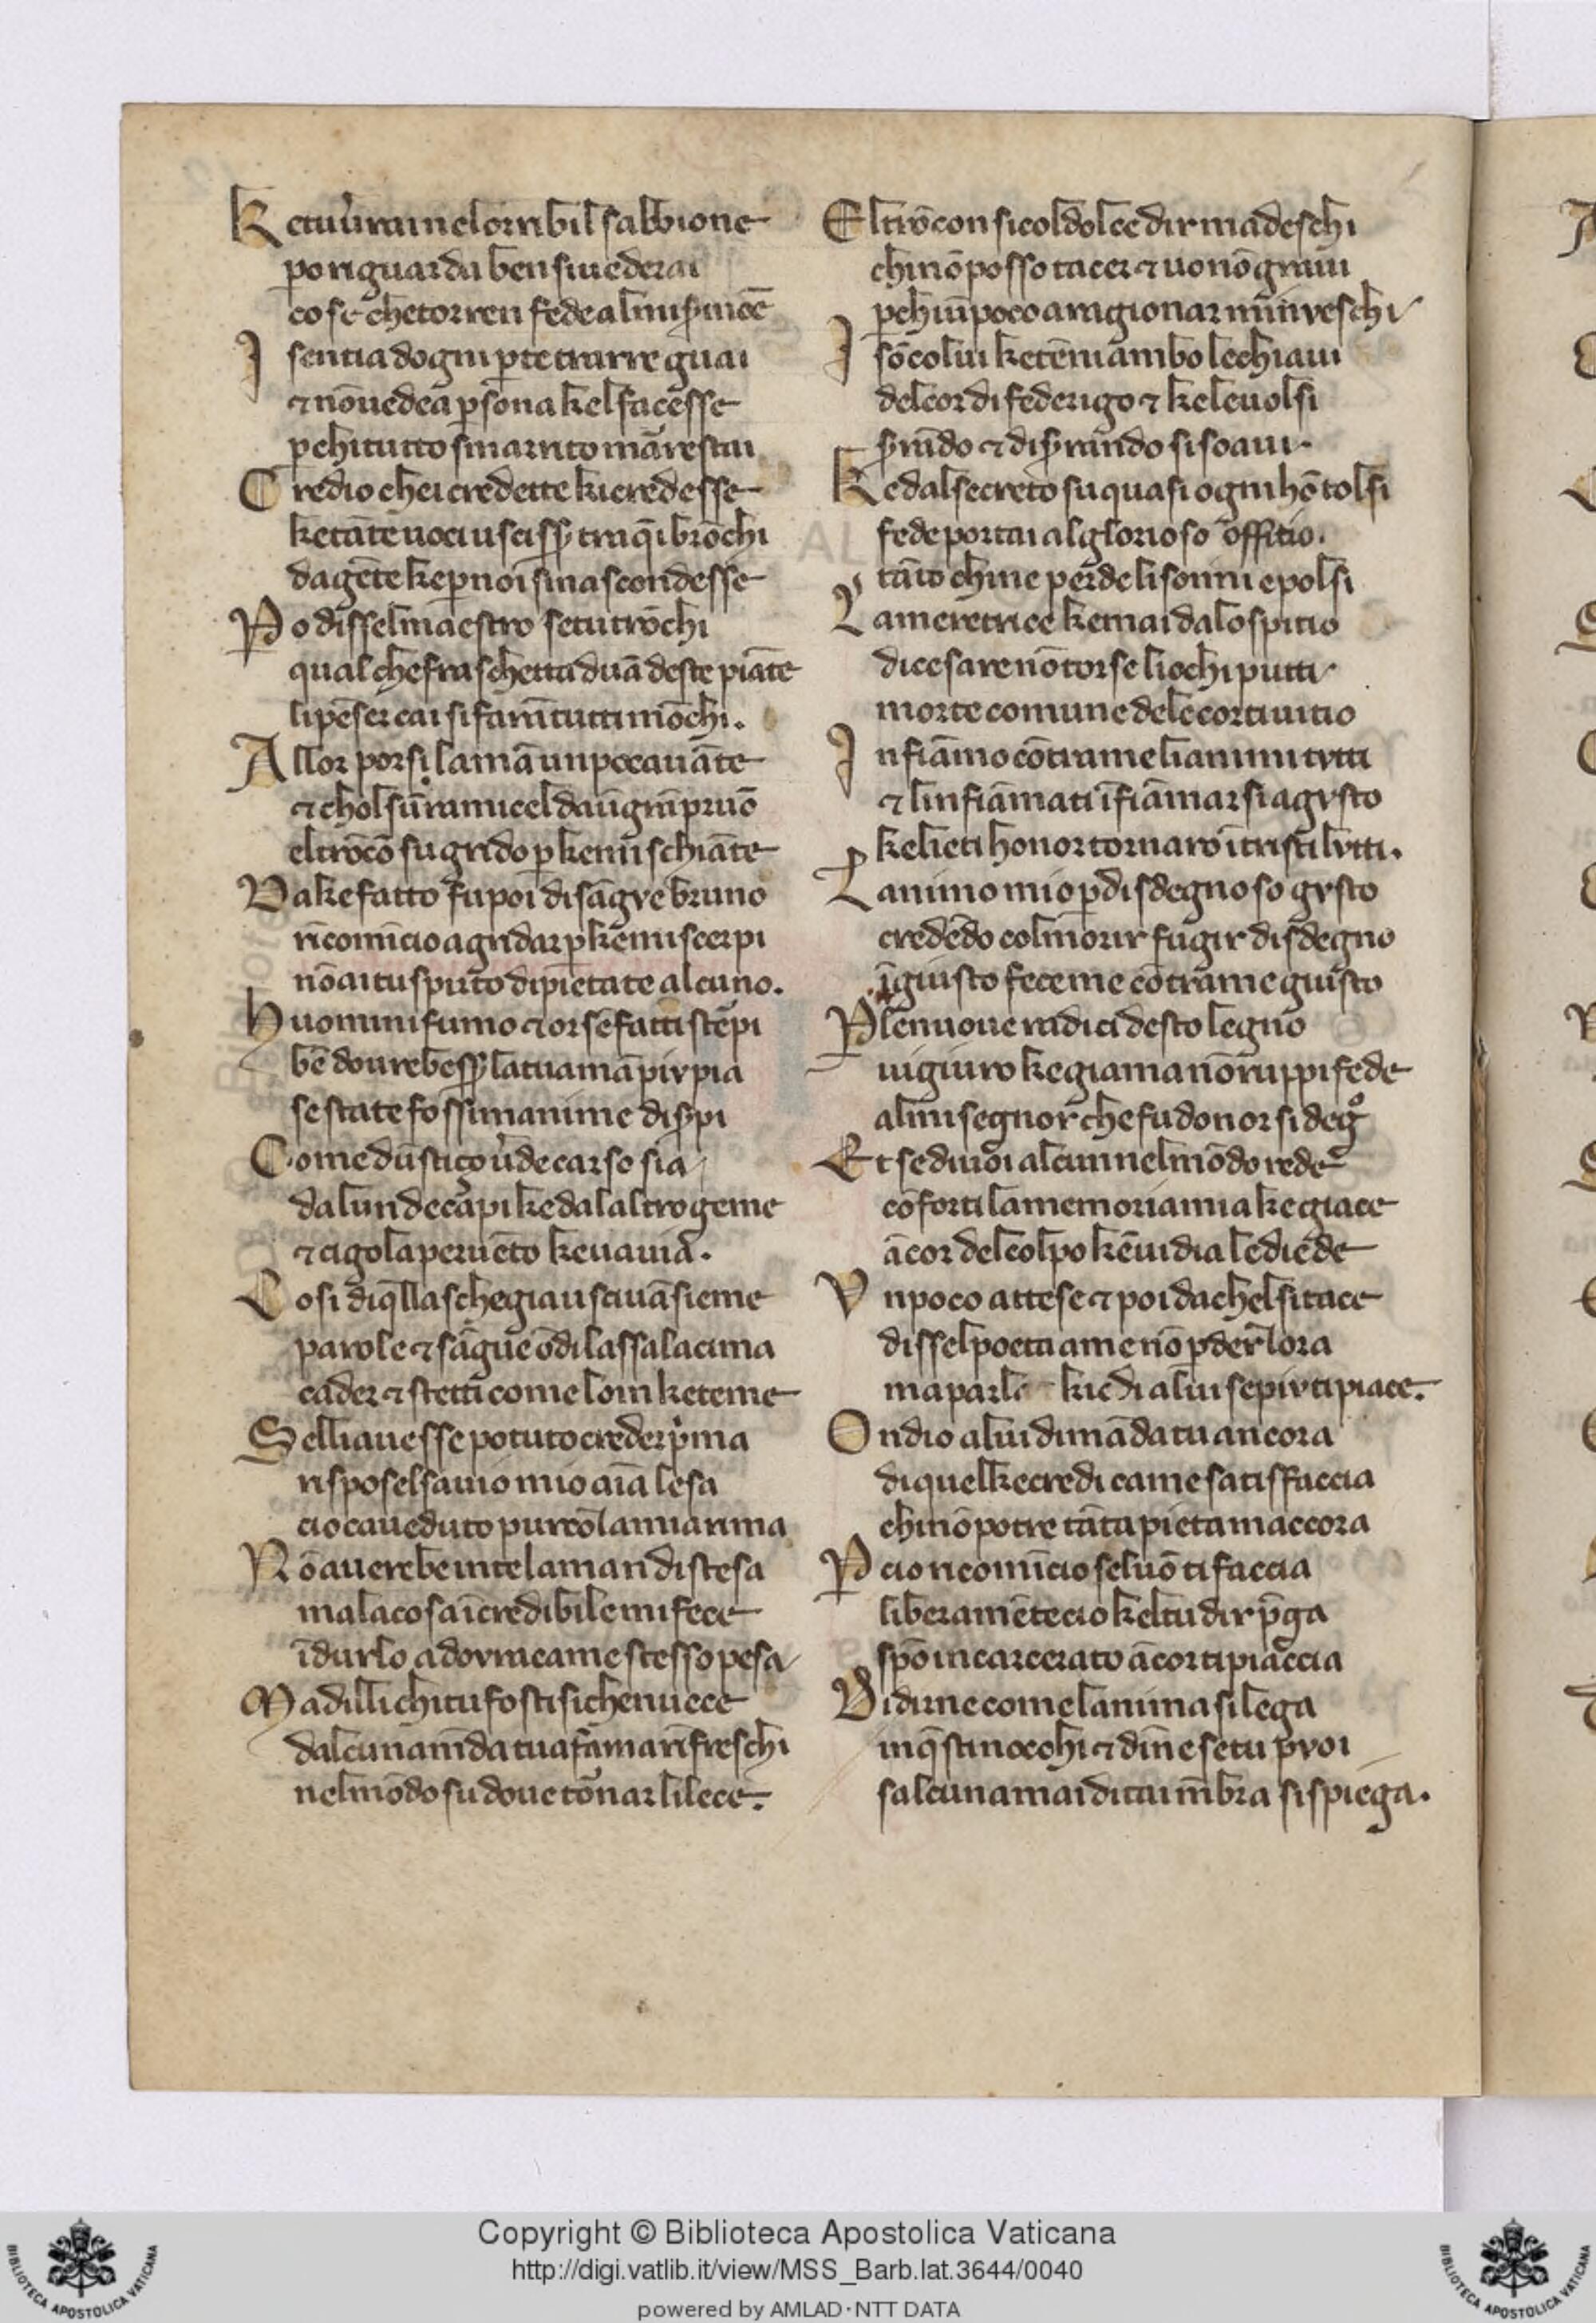 Ke tu ūrrai nel orribil sabbione
po riguarda ben si uederai
cose che torren fede al mi s̄mōe
I sentia dogni p̄te trarre guai
⁊ nō uedea p̄sona kel facesse
p̄chi tutto smarrito mārestai
Credio chei credette kicredesse
ke tāte uoci uscissȳ tra q̄i brōchi
da gēte ke p̄ noi si nascondesse
Po dissel maestro se tu trōchi
qual che fraschetta duā deste piāte
li pēser cai si farā tutti mōchi.
Allor porsi la mā un poco auāte
⁊ cholsi ū ramucel da ū grā pruō
el trōco su grido p̄ke mi schiāte
Da ke fatto fu poi di sāgue bruno
ricomīcio a gridar p̄ke mi scerpi
nō ai tu spirito di pietate alcuno.
Huomini fumo ⁊ or sē fatti stēpi
bē dourebessȳ la tua mā piv pia
se state fossimo anime di s̄pi
Come dū stiço ūde carso sia
da lun de capi ke da laltro geme
⁊ cigola per uēto ke ua uia.
Cosi di q̄lla schegia usciuā sieme
parole ⁊ sāgue ōdi lassa la cima
cader ⁊ stetti come lom ke teme
Selli auesse potuto creder p̄ma
rispose l sauio mio aīa lesa
cio ca ueduto pur cō la mia rima
Nō auerebe in te la man distesa
ma la cosa īcredibile mi fece
īdurlo ad ovra ca me stesso pesa
Ma dilli chi tu fosti si che nuece
dalcuna mīda tua fama rīfreschi
nel mōdo su doue tōnar li lece.
El trōcon si col dolce dir madeschi
chi nō posso tacer ⁊ uo nō graui
p̄chi ū poco a ragionar minveschi
I sō colui ke tēni ambo le chiaui
del cor di federigo ⁊ ke le uolsi
s̄rādo ⁊ dis̄rando si soaui.
Ke dal secreto su quasi ogni hō tolsi
fede portai al glorioso offitio.
tāto chine perde li sonni e polsi
La meretrice ke mai da lospitio
di cesare nō torse li ochi putti
morte comune de le corti uitio
Infiāmo cōtra me li animi tvtti
⁊ linfiāmati īfiāmar si agvsto
ke lieti honor tornaro ī tristi lvtti.
Lanimo mio p̄ disdegnoso gvsto
credēdo col morir fugir disdegno
īgiusto fece me cōtra me giusto
P le nuoue radici desto legno
ui giuro ke gia mai nō ruppi fede
al mi segnor che fu donor si deg°
Et se di uoi alcun nel mōdo rede
cōforti la memoria mia ke giace
ācor del colpo kēuidia le diede
Un poco attese ⁊ poi da chel si tace
dissel poeta a me nō p̄der lora
ma parla kiedi a lui se piv ti piace.
Ondio a lui dimāda tu ancora
di quel ke credi ca me satisfaccia
chi nō potre tāta pieta maccora
P cio ricomīcio se luō ti faccia
liberamēte cio kel tu dir p̄ga
sp̄o incarcerato ācor ti piaccia
Di dirne come lanima si lega
in q̄sti nocchi ⁊ dīne se tu pvoi
salcuna mai di tai mēbra si spiega.
Copyright © Biblioteca Apostolica Vaticana
http://digi.vatlib.it/view/MSS_Barb.lat.3644/0040
powered by AMLAD·NTT DATA
BIBLIOTECA APOSTOLICA VATICANA
BIBLIOTECA APOSTOLICA VATICANA